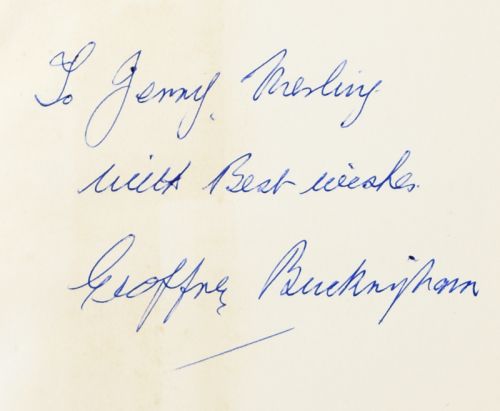 To Jenny, Mesling
with Best wishes
Geoffrey Buckingham